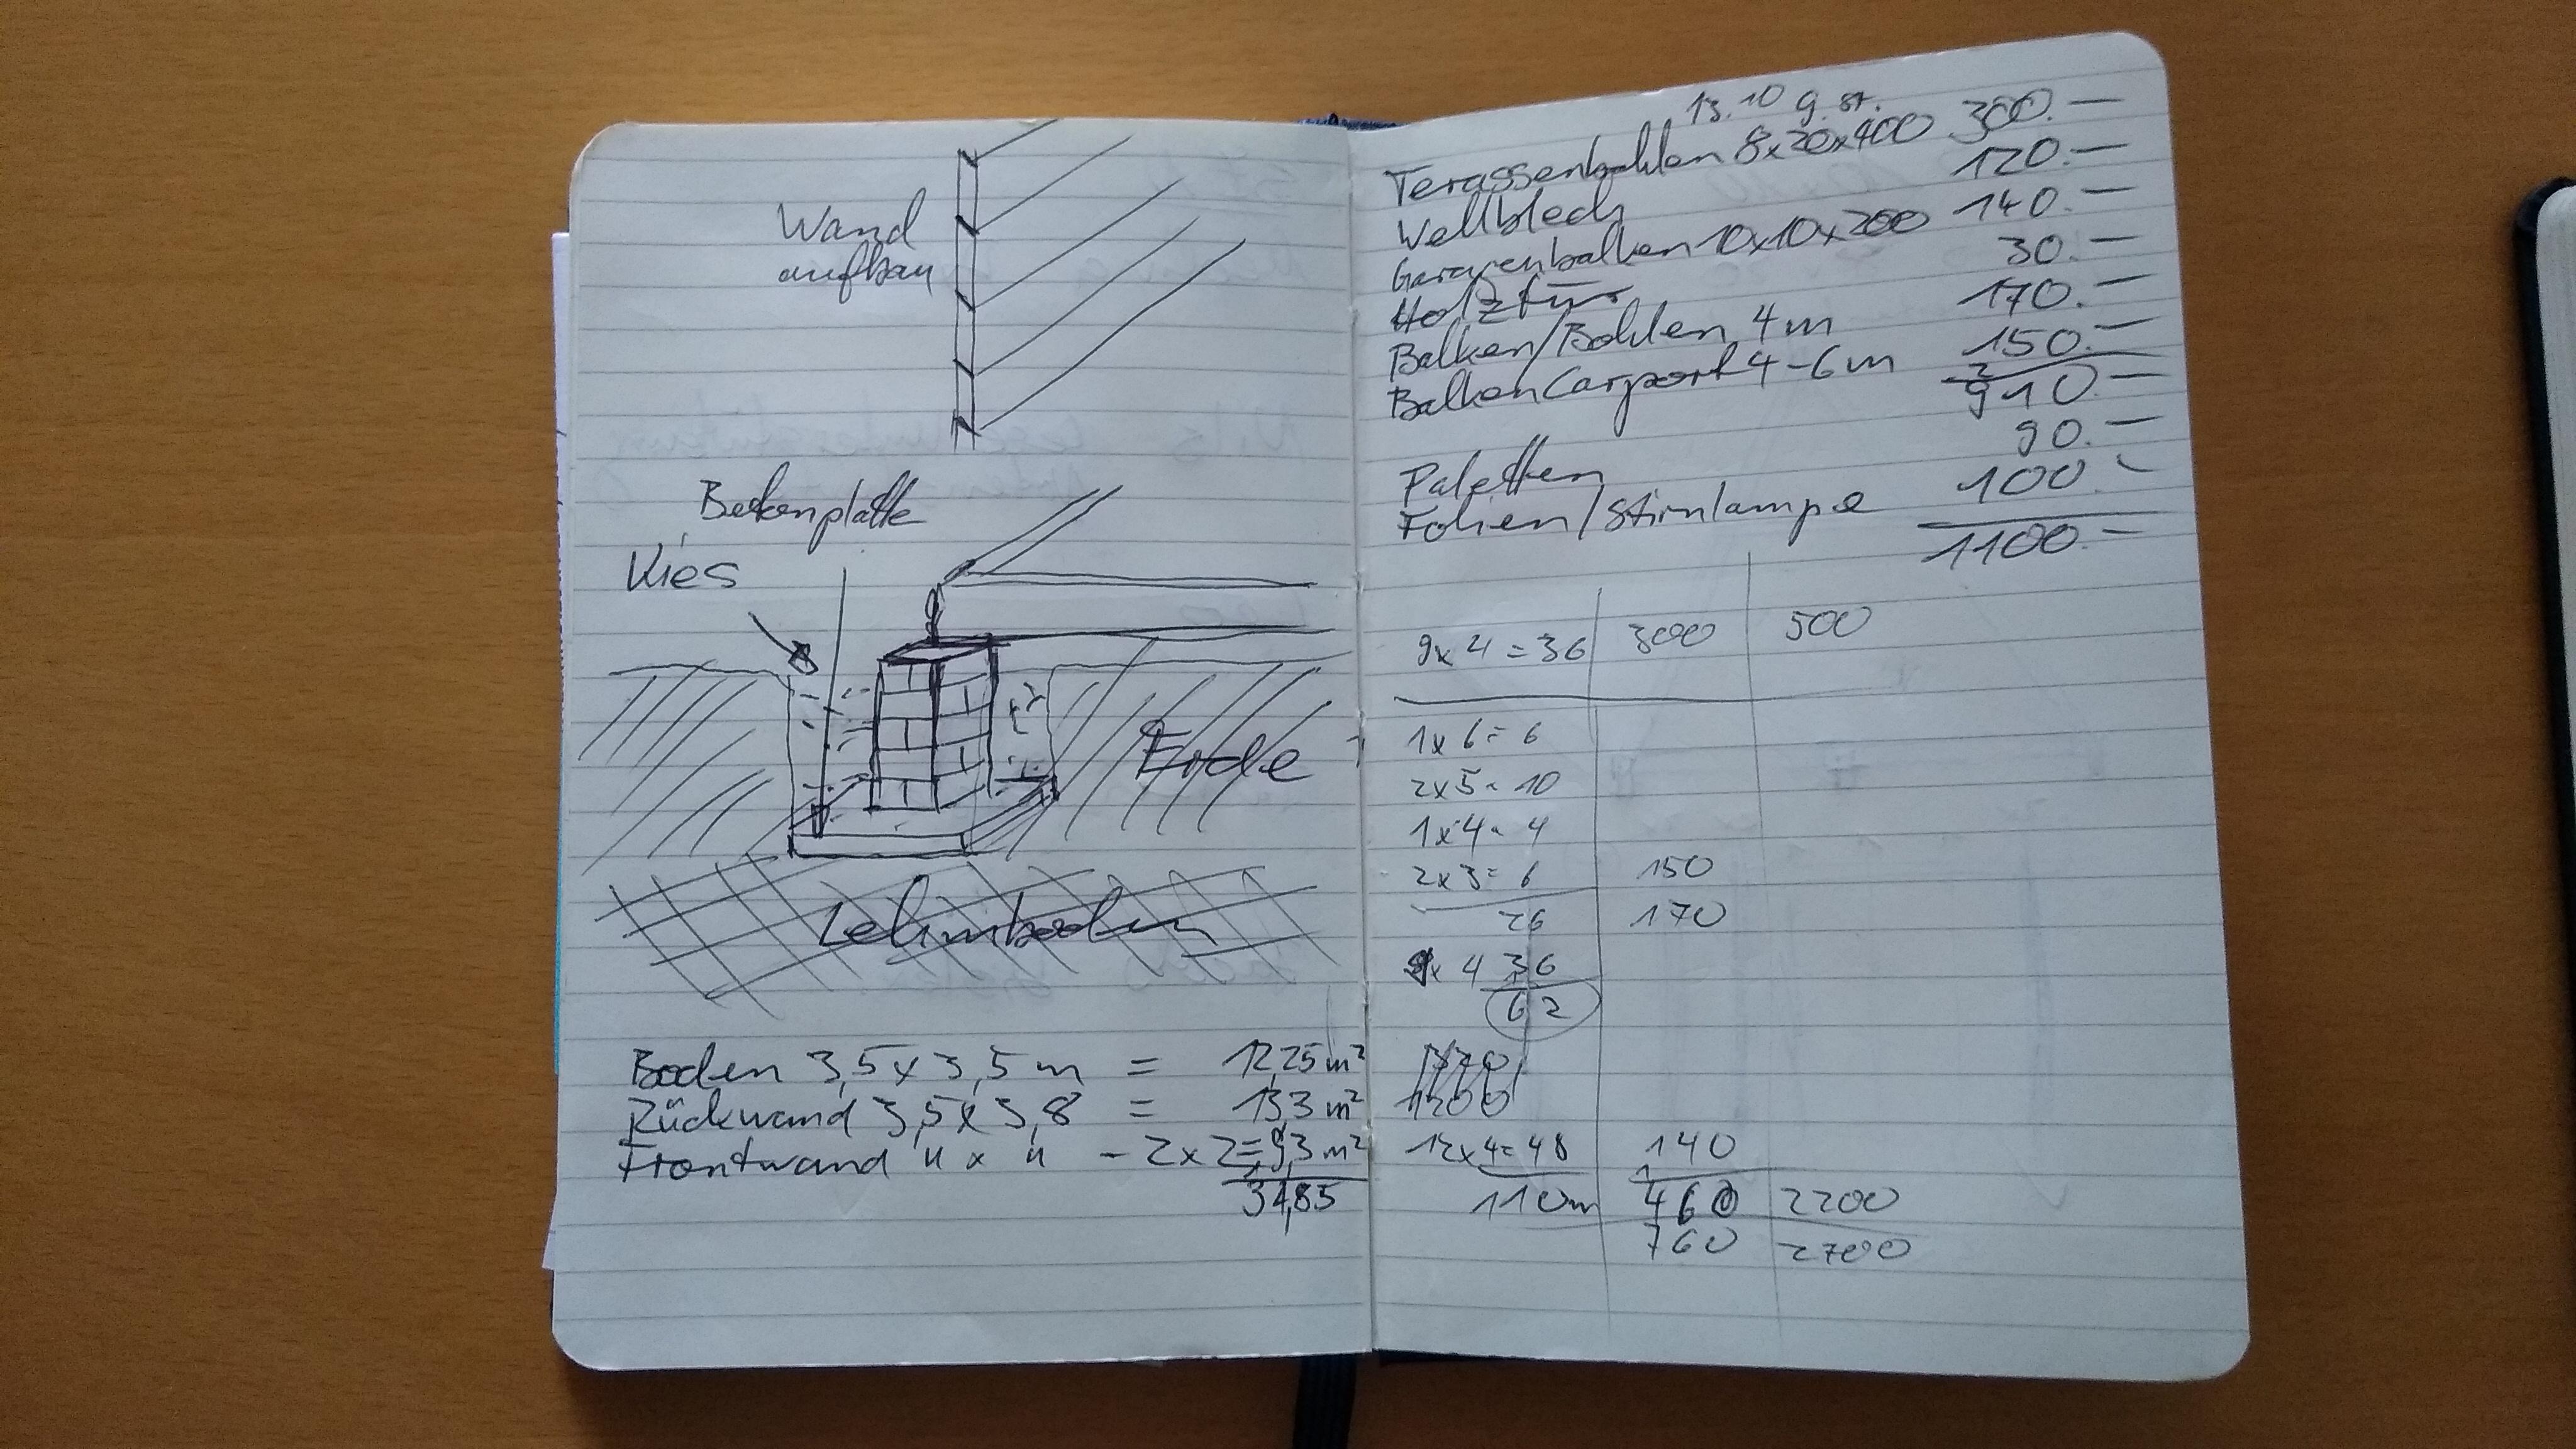 Wand
aufbau
Betonplatte
Kies
Erde
Lehmboden
Boden 3,5 x 3,5 m = 12,25 m²
Rückwand 3,5 x 3,8 = 13,3 m²
Frontwand " x " - 2 x 2 = 9,3 m²
34,85
13.10 9 st.
Terassenbohlen 8x20x400 300.—
Wellblech 120.—
Garagenbalken 10x10x200 140.—
Holztür 30.—
Balken/Bohlen 4m 170.—
Balken Carport 4-6m 150.—
910.—
Paletten 90.—
Folien/Stirnlampe 100.—
1100.—
9 x 4 = 36 3000 500
1 x 6 = 6
2 x 5 = 10
1 x 4 = 4
2 x 3 = 6 150
26 170
9x 4 36
62
1200
12 x 4 = 48 140
110m 460 2200
760 2700